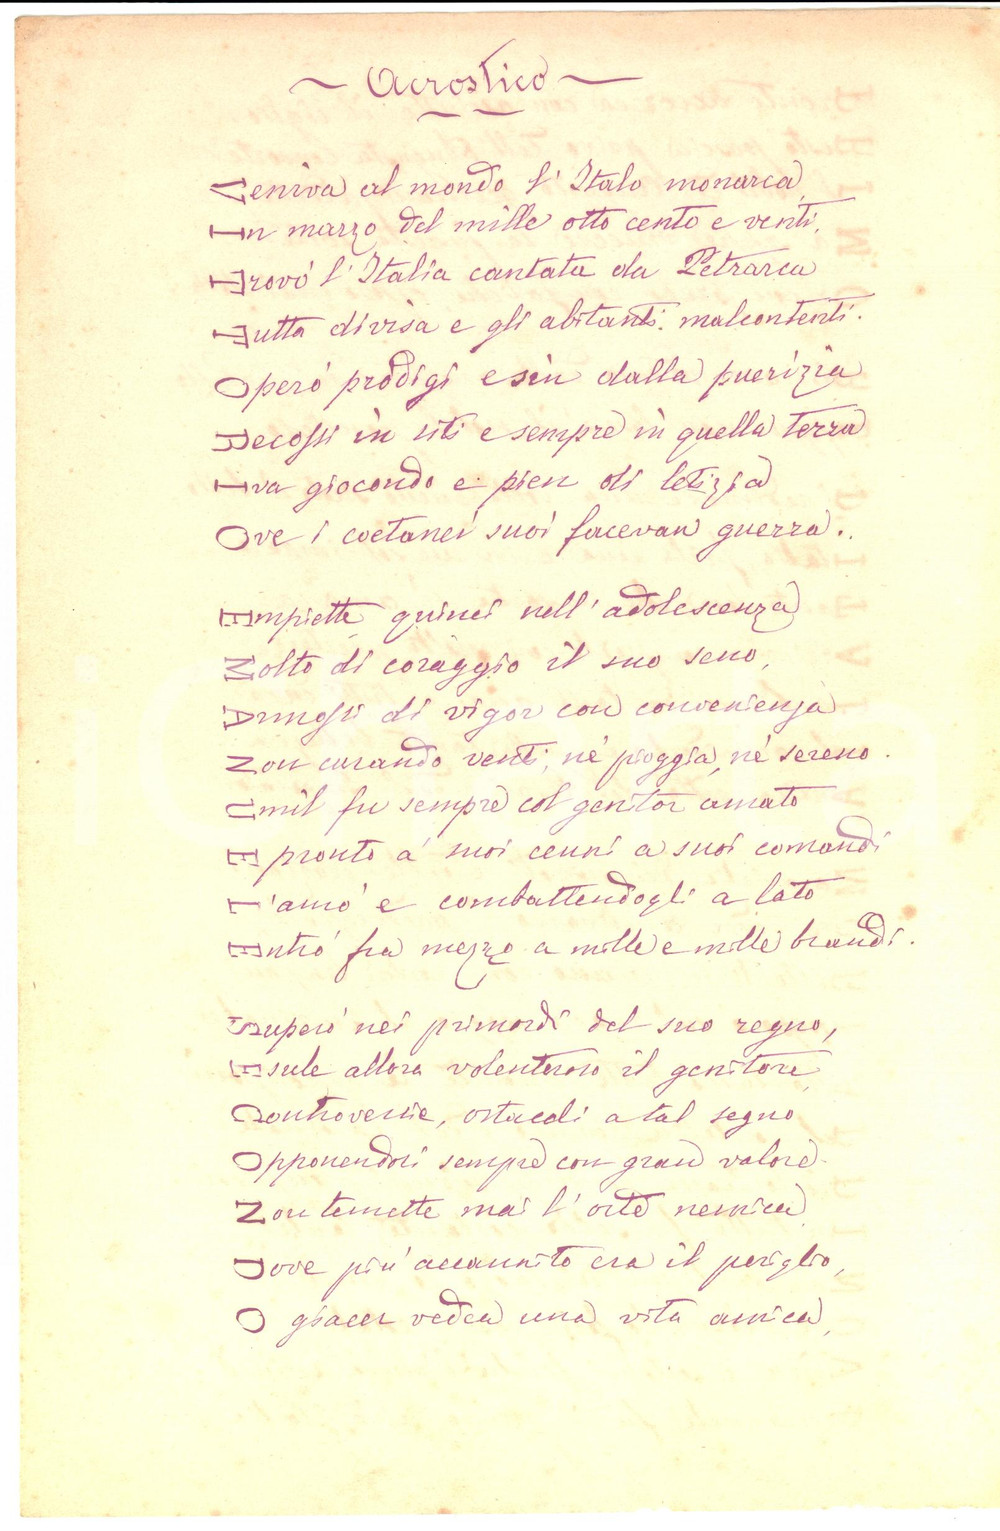 ~ Acrostico ~
Veniva al mondo l'Italo monarca
In marzo del mille otto cento e venti,
Trovò l'Italia cantata da Petrarca
Tutta divisa e gli abitanti malcontenti.
Operò prodigi e sin dalla puerizia
Recossi in siti e sempre in quella terra
Iva giocondo e pien di letizia
Ove i coetanei suoi facevan guerra..
Empiette quinci nell'adolescenza
Molto di coraggio il suo seno,
Armossi di vigor con convenienza
Non curando venti, nè pioggia, nè sereno.
Umil fu sempre col genitor amato
E pronto a' suoi cenni a suoi comandi
L'amò e combattendogli a lato
Entrò fra mezzo a mille e mille brandi.
Superò nei primordi del suo regno,
Esule allora volenteroso il genitore,
Controversie, ostacoli a tal segno
Opponendosi sempre con gran valore.
Non temette mai l'oste nemica
Dove più accannito era il periglio,
O giacer vedea una vita amica,